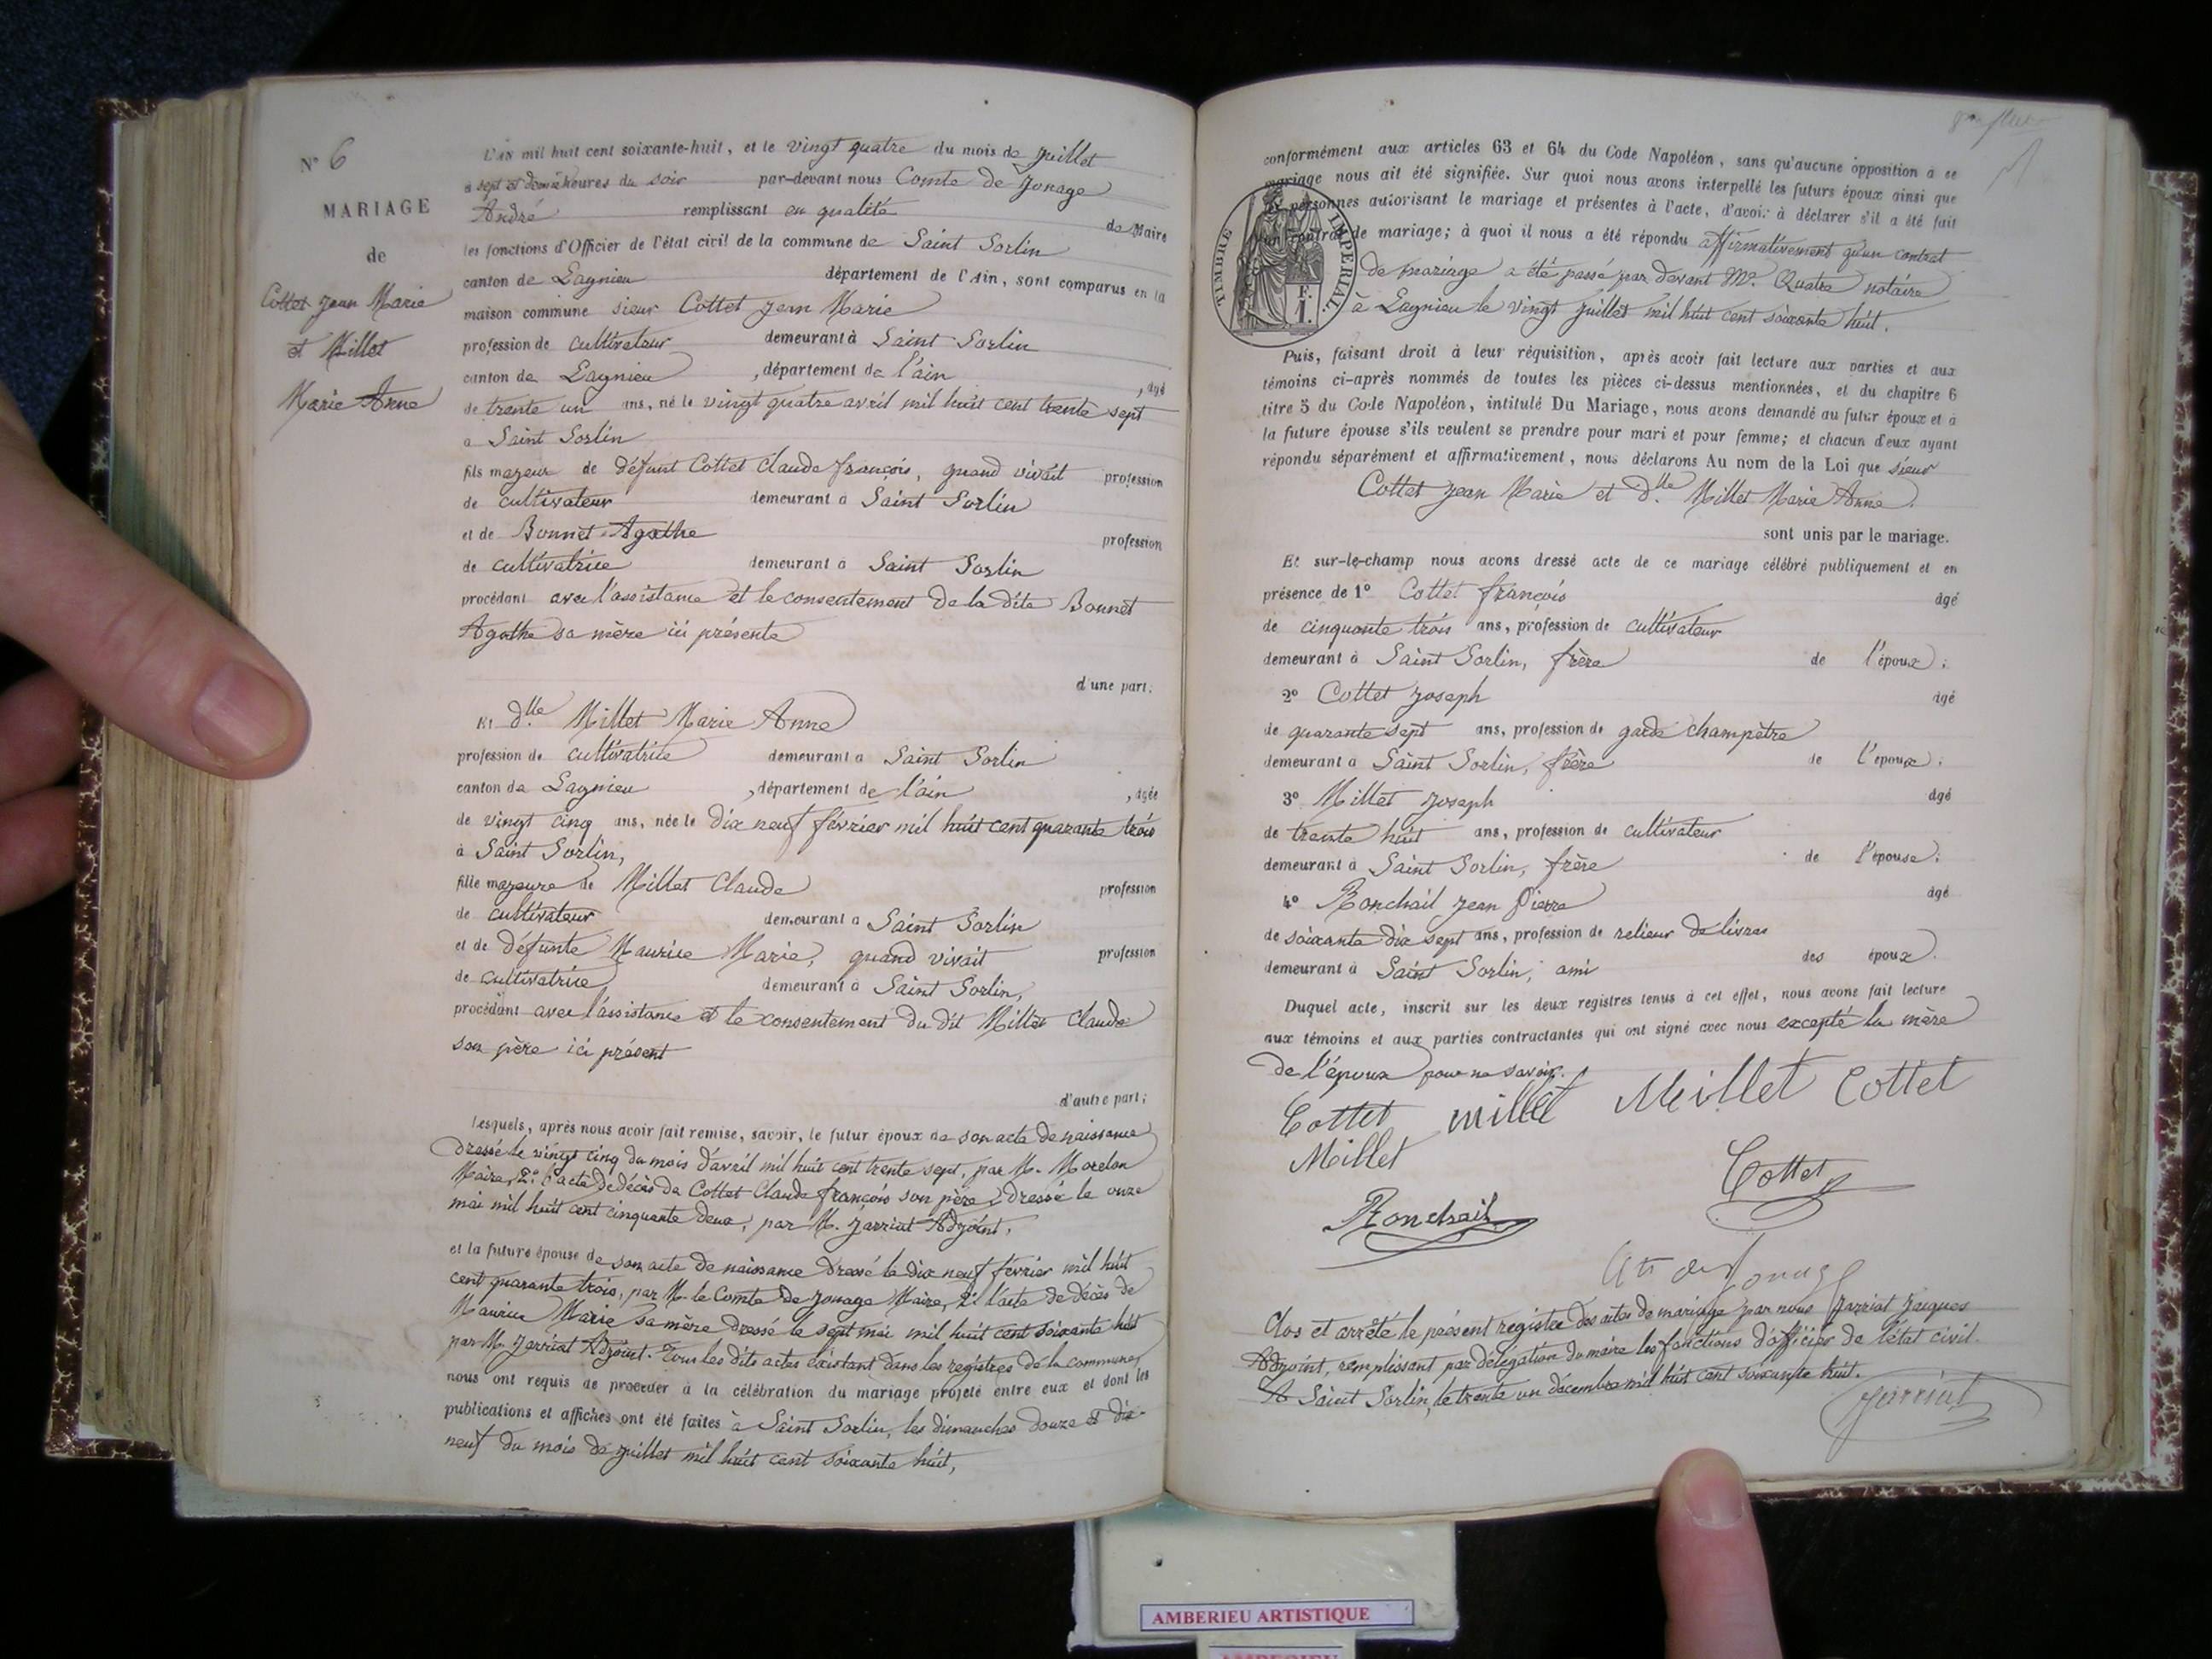 N° 6
MARIAGE
de
Cottet Jean Marie
et Millet
Marie Anne
L'AN mil huit cent soixante-huit, et le vingt quatre du mois de juillet
à sept et demie heures du soir par-devant nous Comte de Jonage
André remplissant en qualité de Maire
les fonctions d'Officier de l'état civil de la commune de Saint Sorlin
canton de Lagnieu département de l'Ain, sont comparus en la
maison commune sieur Cottet Jean Marie
profession de cultivateur demeurant à Saint Sorlin
canton de Lagnieu , département de l'ain , âgé
de trente un ans, né le vingt quatre avril mil huit cent trente sept
à Saint Sorlin
fils majeur de défunt Cottet Claude françois, quand vivait profession
de cultivateur demeurant à Saint Sorlin
et de Bonnet Agathe profession
de cultivatrice demeurant à Saint Sorlin
procédant avec l'assistance et le consentement de la dite Bonnet
Agathe sa mère ici présente
d'une part;
Et dlle Millet Marie Anne
profession de cultivatrice demeurant à Saint Sorlin
canton de Lagnieu , département de l'ain , âgée
de vingt cinq ans, née le dix neuf février mil huit cent quarante trois
à Saint Sorlin,
fille majeure de Millet Claude profession
de cultivateur demeurant à Saint Sorlin
et de défunte Maurice Marie, quand vivait profession
de cultivatrice demeurant à Saint Sorlin,
procédant avec l'assistance et le consentement du dit Millet Claude
son père ici présent
d'autre part;
Lesquels, après nous avoir fait remise, savoir, le futur époux de son acte de naissance
dressé le vingt cinq du mois d'avril mil huit cent trente sept, par M. Morelon
Maire, 2° l'acte de décès de Cottet Claude françois son père, dressé le onze
mai mil huit cent cinquante deux, par M. Jarriat Adjoint,
et la future épouse de son acte de naissance dressé le dix neuf février mil huit
cent quarante trois, par M. le Comte de Jonage Maire, 2° l'acte de décès de
Maurice Marie sa mère dressé le sept mai mil huit cent soixante huit
par M. Jarriat Adjoint. Tous les dits actes existant dans les registres de la commune,
nous ont requis de procéder à la célébration du mariage projeté entre eux et dont les
publications et affiches ont été faites à Saint Sorlin, les dimanches douze et dix-
neuf du mois de juillet mil huit cent soixante huit,
conformément aux articles 63 et 64 du Code Napoléon, sans qu'aucune opposition à ce
mariage nous ait été signifiée. Sur quoi nous avons interpellé les futurs époux ainsi que
les personnes autorisant le mariage et présentes à l'acte, d'avoir à déclarer s'il a été fait
un contrat de mariage; à quoi il nous a été répondu affirmativement qu'un contrat
de mariage a été passé par devant Me. Quatre notaire
à Lagnieu le vingt juillet mil huit cent soixante huit.
TIMBRE IMPÉRIAL.
F.
1.
Puis, faisant droit à leur réquisition, après avoir fait lecture aux parties et aux
témoins ci-après nommés de toutes les pièces ci-dessus mentionnées, et du chapitre 6
titre 5 du Code Napoléon, intitulé Du Mariage, nous avons demandé au futur époux et à
la future épouse s'ils veulent se prendre pour mari et pour femme; et chacun d'eux ayant
répondu séparément et affirmativement, nous déclarons Au nom de la Loi que sieur
Cottet Jean Marie et dlle Millet Marie Anne.
sont unis par le mariage.
Et sur-le-champ nous avons dressé acte de ce mariage célébré publiquement et en
présence de 1° Cottet françois âgé
de cinquante trois ans, profession de cultivateur
demeurant à Saint Sorlin, frère de l'époux;
2° Cottet Joseph âgé
de quarante sept ans, profession de garde champêtre
demeurant à Saint Sorlin, frère de l'époux;
3° Millet Joseph âgé
de trente huit ans, profession de cultivateur
demeurant à Saint Sorlin, frère de l'épouse;
4° Ronchail Jean Pierre âgé
de soixante dix sept ans, profession de relieur de livres
demeurant à Saint Sorlin, ami des époux.
Duquel acte, inscrit sur les deux registres tenus à cet effet, nous avons fait lecture
aux témoins et aux parties contractantes qui ont signé avec nous excepté la mère
de l'époux pour ne savoir.
Cottet millet Meillet Cottet
Millet
Cottet
Ronchail
Cte de Jonage
Clos et arrêté le présent registre des actes de mariage par nous Jarriat Jacques
Adjoint, remplissant par délégation du maire les fonctions d'officier de l'état civil.
A Saint Sorlin, le trente un décembre mil huit cent soixante huit.
Jarriat
AMBERIEU ARTISTIQUE
AMBERIEU